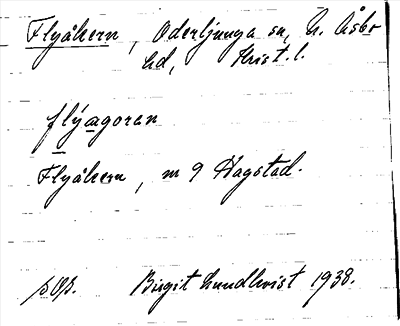 Flyåkern, Oderljunga sn, N. Åsbo
hd, Krist. l.
flýagoran
Flyåkern, m 9 Hagstad.
Birgit Lundkvist 1938.